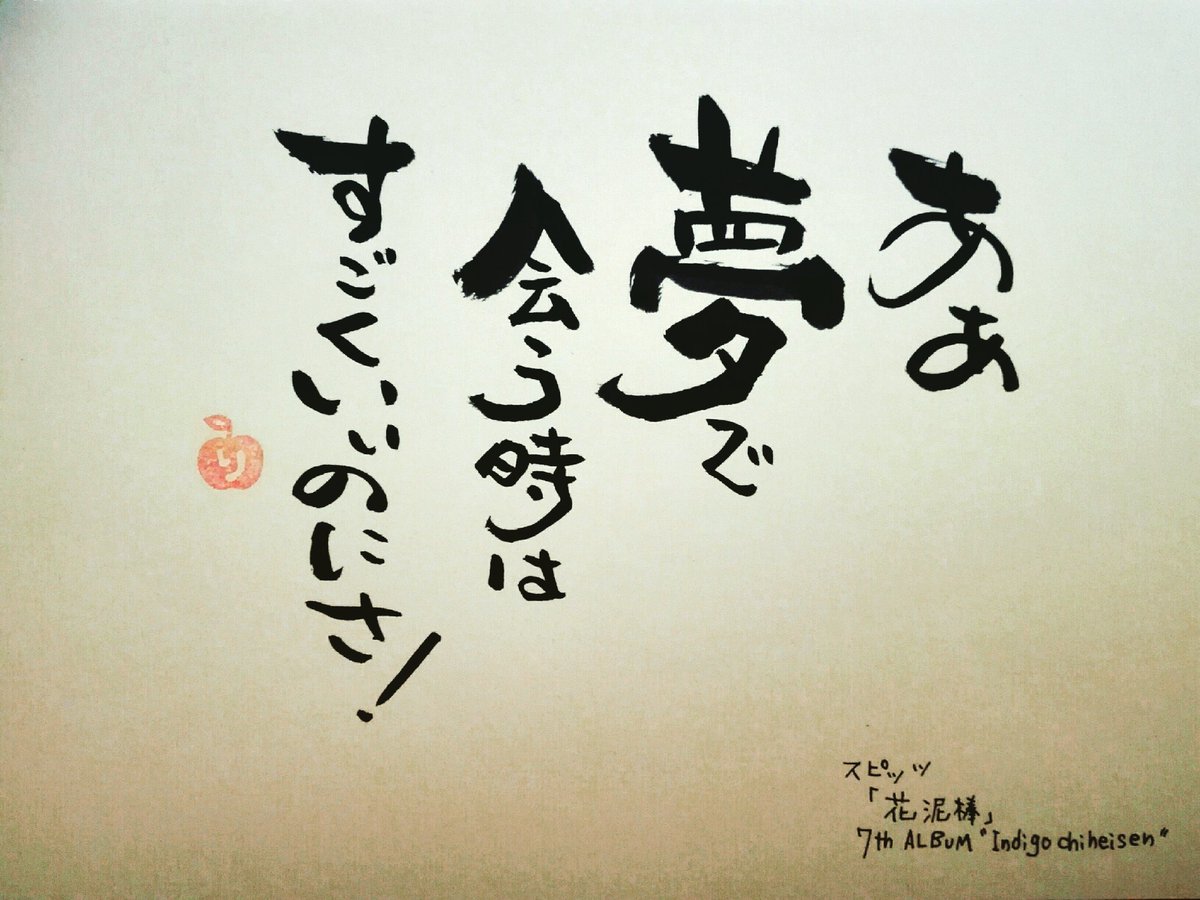 ああ
夢で
会う時は
すごくいいのにさ!
り
スピッツ
「花泥棒」
7th ALBUM "Indigo chiheisen"